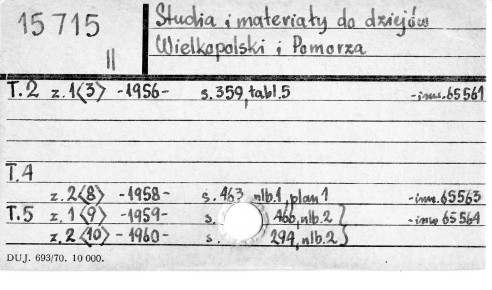 15715
II
Studia i materiały do dziejów
Wielkopolski i Pomorza
T.2 z.1<3> -1956- s.359, tabl.5 -inw.65561
T.4
z.2<8> -1958- s.463, nlb.1, plan 1 -inw.65563
T.5 z.1<9> -1959- s. 466, nlb.2 } -inw 65564
z.2<10> -1960- s. 294, nlb.2 }
DUJ. 693/70. 10 000.